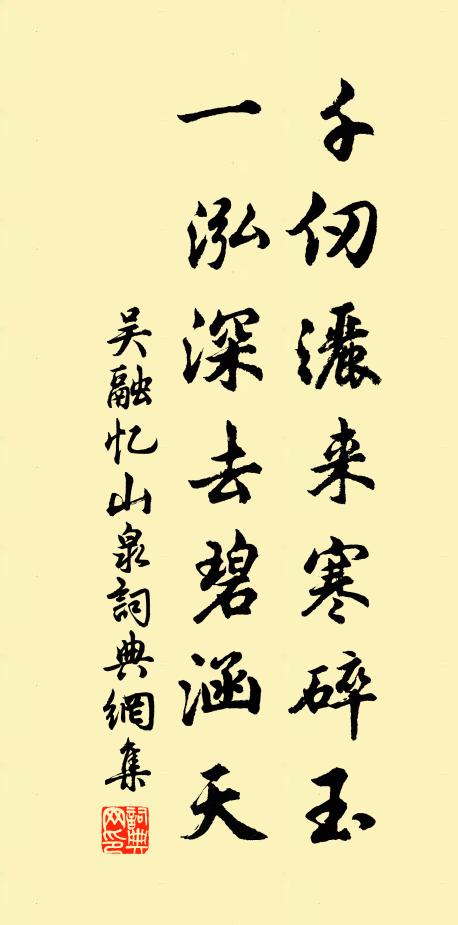 千仞灑来寒碎玉
一泓深去碧涵天
吴融忆山泉詞典網集
詞典
网印